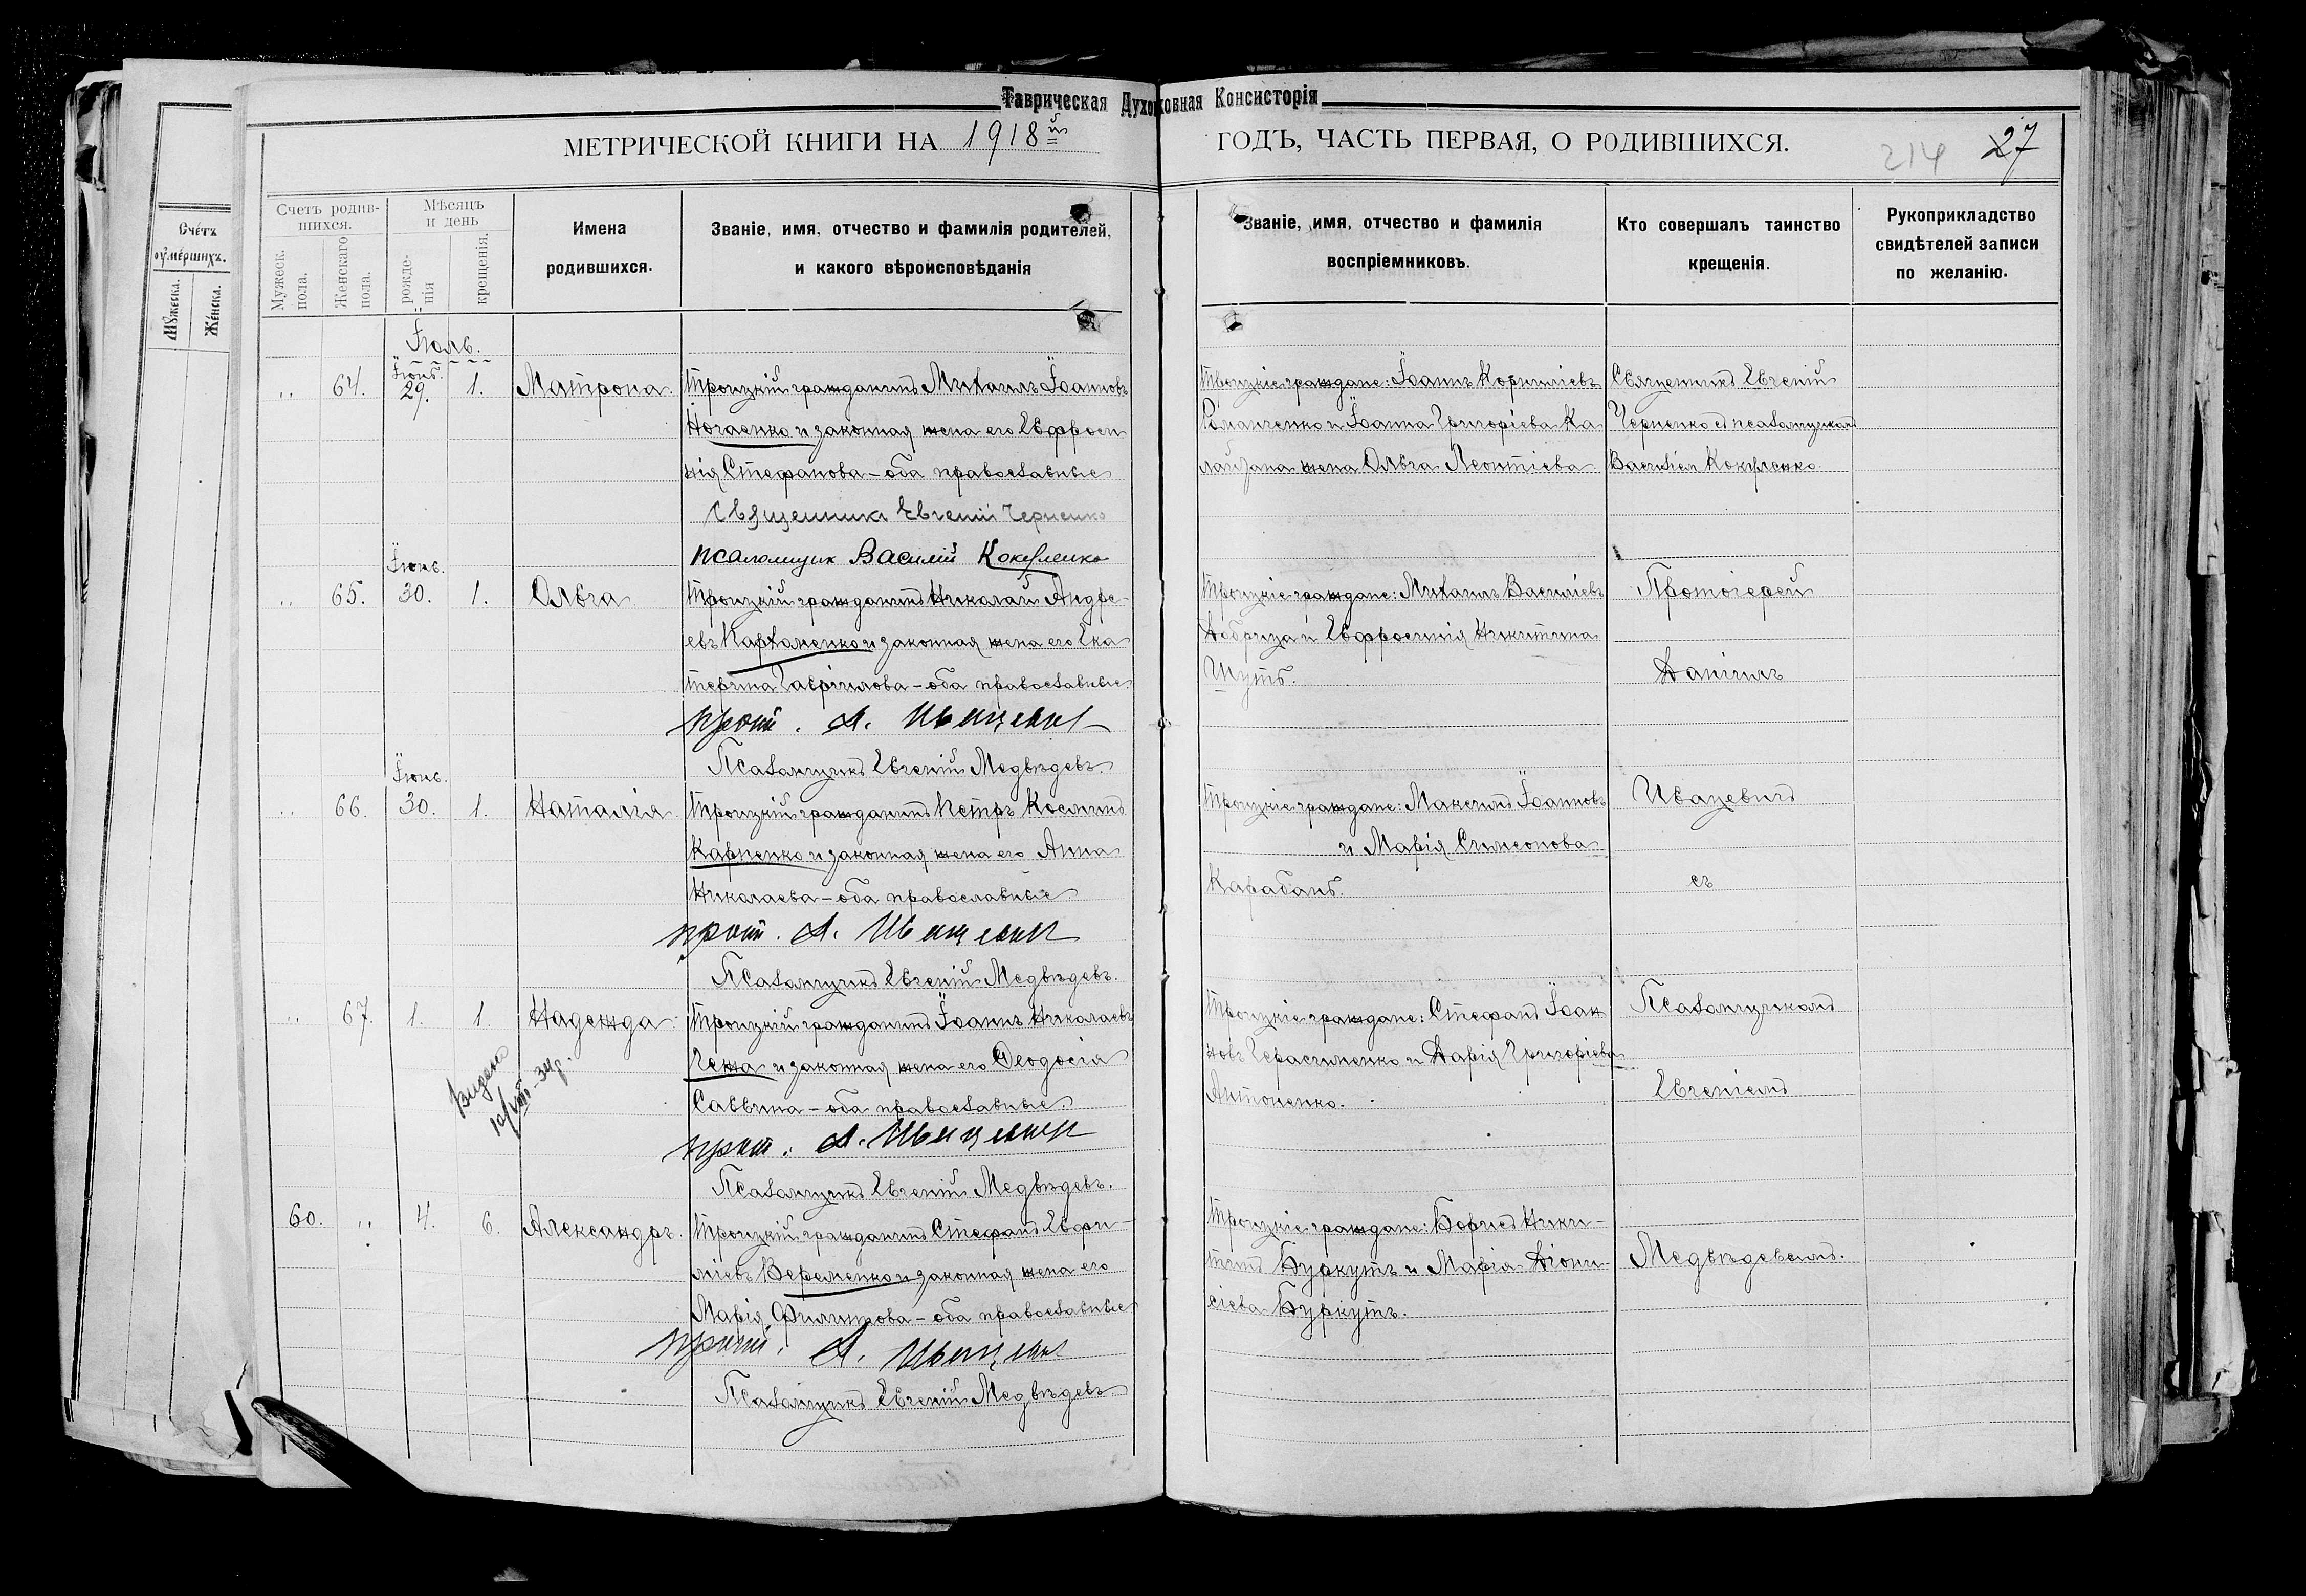 Таврическая Духовная Консисторія
МЕТРИЧЕСКОЙ КНИГИ НА 1918й
ГОДЪ, ЧАСТЬ ПЕРВАЯ, О РОДИВШИХСЯ.
214 27
Счетъ
умершихъ.
Мужеска.
Женска.
Счетъ родив-
шихся.
Мужеск.
пола.
Женскаго
пола.
Мѣсяцъ
и день
рожде-
нія
крещенія.
Имена
родившихся.
Званіе, имя, отчество и фамилія родителей,
и какого вѣроисповѣданія
Званіе, имя, отчество и фамилія
воспріемниковъ.
Кто совершалъ таинство
крещенія.
Рукоприкладство
свидѣтелей записи
по желанію.
Іюль.
Іюнь.
„ 64. 29. 1. Матрона. Троицкій гражданинъ Михаилъ Іоанновъ
Ногаенко и законная жена его Евфроси
нія Стефанова – оба православные
Священник Евгений Черненко
псаломщик Василий Кокуленко
Троицкіе граждане: Іоаннъ Корниліевъ
Романченко и Іоанна Григоріева Ка
лайдана жена Ольга Леонтіева
Священникъ Евгеній
Черненко съ псаломщикомъ
Василіем Кокуленко
Іюнь.
„ 65. 30. 1. Ольга Троицкій гражданинъ Николай Андре-
евъ Пархоменко и законная жена его Ека
терина Гавріилова – оба православные.
прот. Д. Ивацевич
Псаломщикъ Евгеній Медвѣдевъ.
Троицкіе граждане: Михаилъ Василіевъ
Добрица и Евфросинія Никитина
Шутъ.
Протоіерей
Даніилъ
Іюнь.
„ 66. 30. 1. Наталія Троицкій гражданинъ Петръ Косминъ
Карпенко и законная жена его Анна
Николаева – оба православные
прот. Д. Ивацевич
Псаломщикъ Евгеній Медвѣдевъ.
Троицкіе граждане: Максимъ Іоанновъ
и Марія Симеонова
Карабанъ.
Ивацевичъ
съ
„ 67. 1. 1. Надежда. Троицкій гражданинъ Іоаннъ Николаевъ
Чежа и законная жена его Ѳеодосія
Саввина – оба православные.
прот. Д. Ивацевич
Псаломщикъ Евгеній Медвѣдевъ.
Выдано
Троицкіе граждане: Стефанъ Іоан
новъ Герасименко и Дарія Григоріева
Антоненко.
Псаломщикомъ
Евгеніемъ
60. „ 4. 6. Александръ. Троицкій гражданинъ Стефанъ Евфи-
міевъ Веременко и законная жена его
Марія Филиппова – оба православные
прот. Д. Ивацевич
Псаломщикъ Евгеній Медвѣдевъ
Троицкіе граждане: Борисъ Ники-
тинъ Буркутъ и Марія Діони-
сіева Буркутъ.
Медвѣдевымъ.